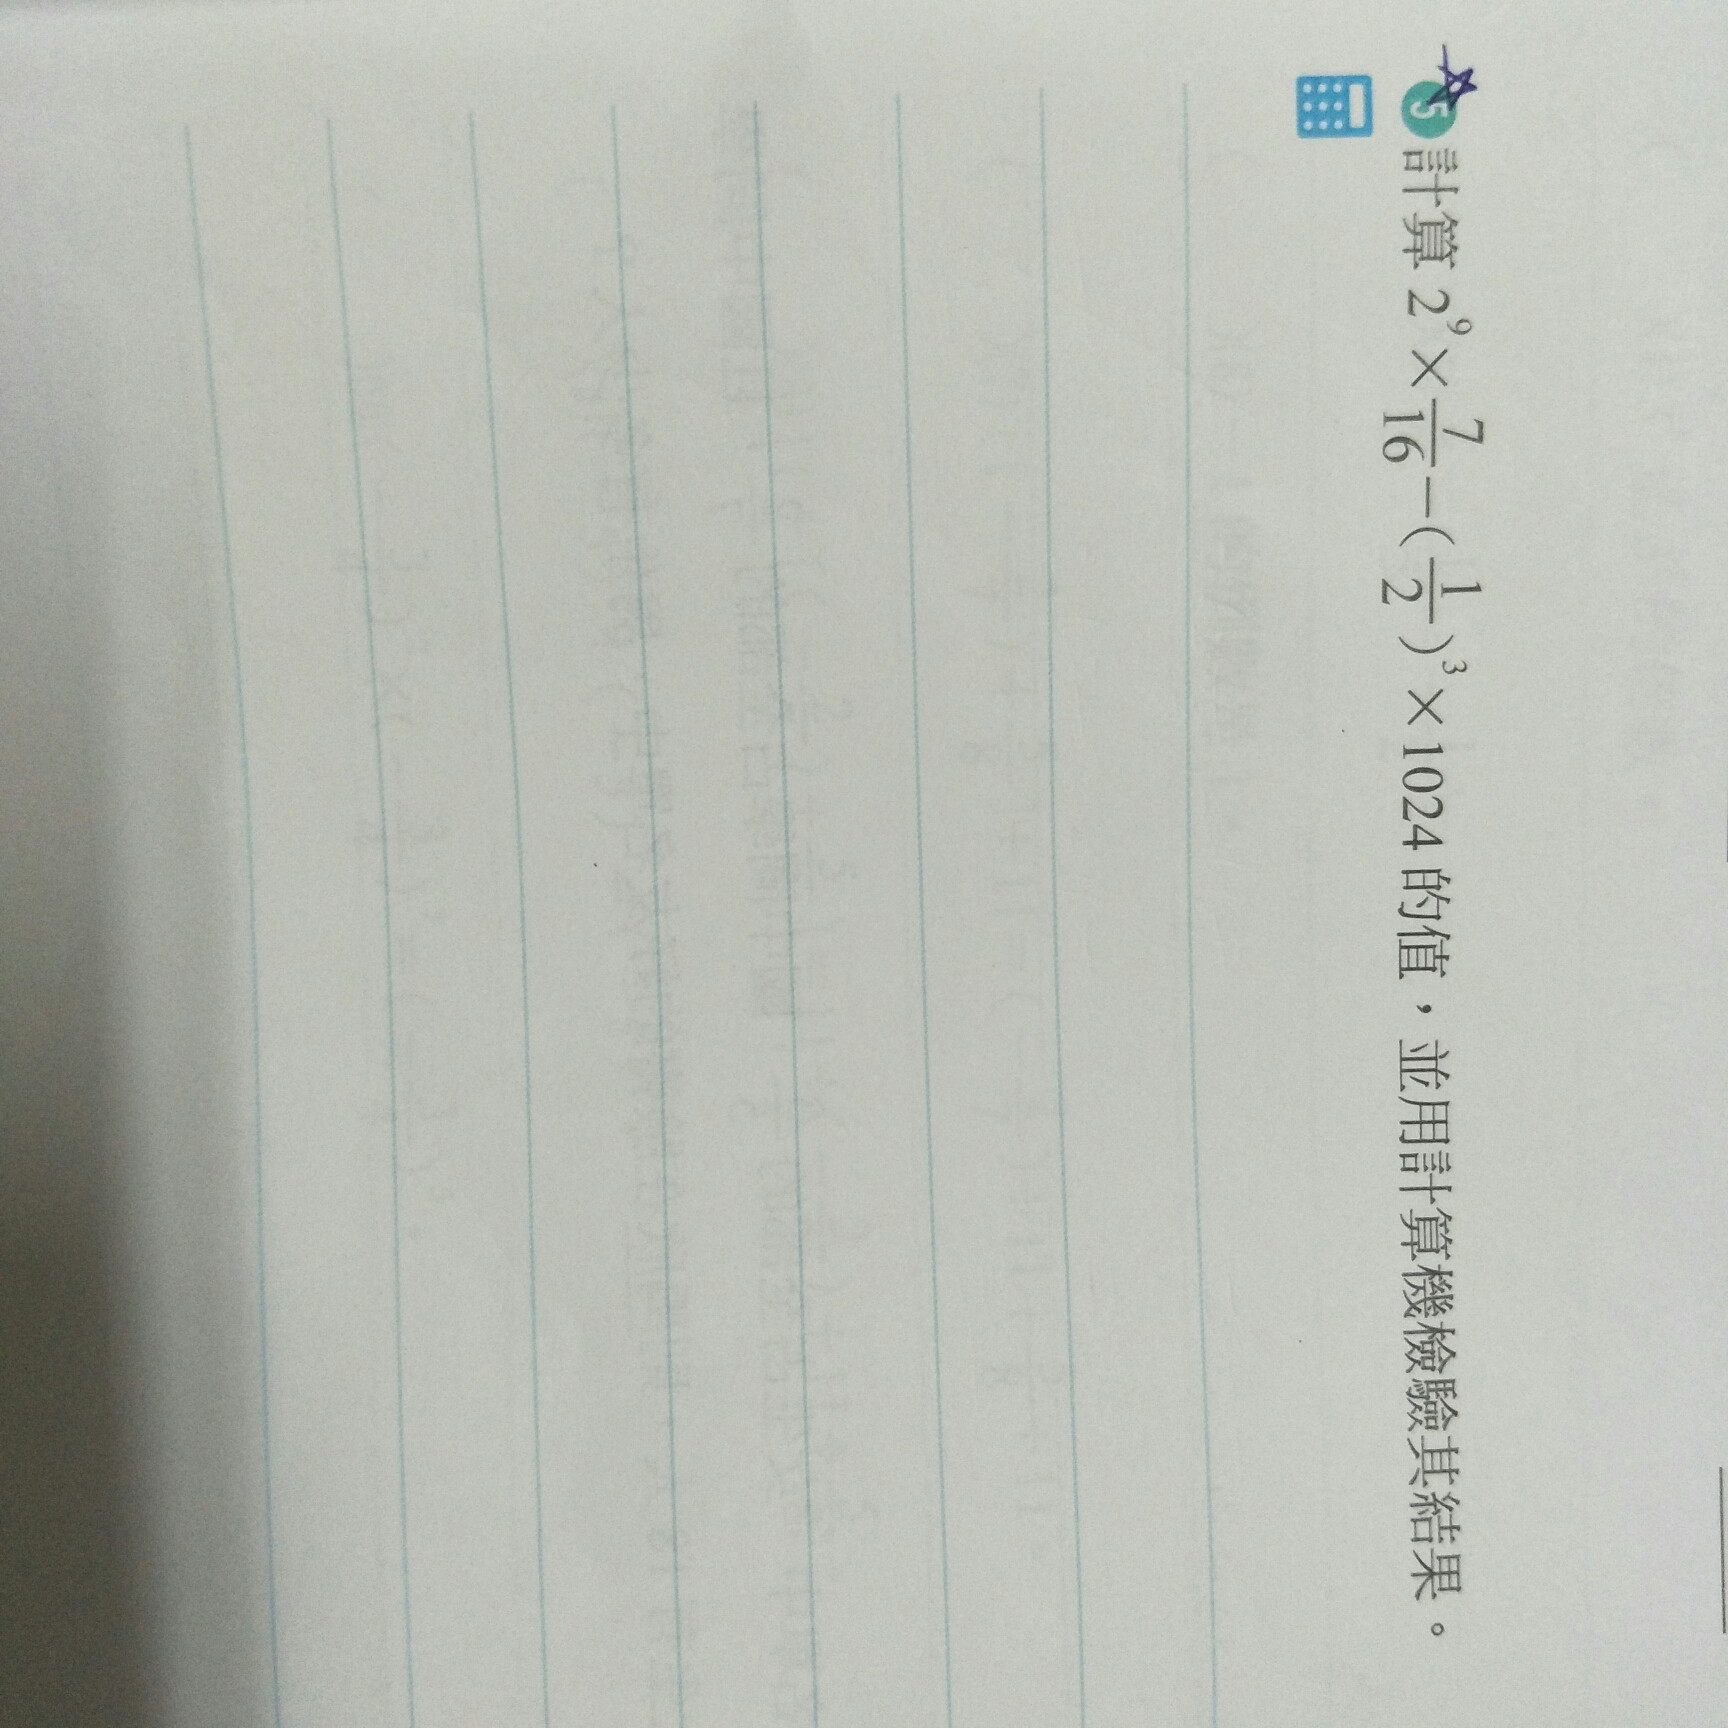 5 計算 2⁹×7/16−(1/2)³×1024 的值，並用計算機檢驗其結果。